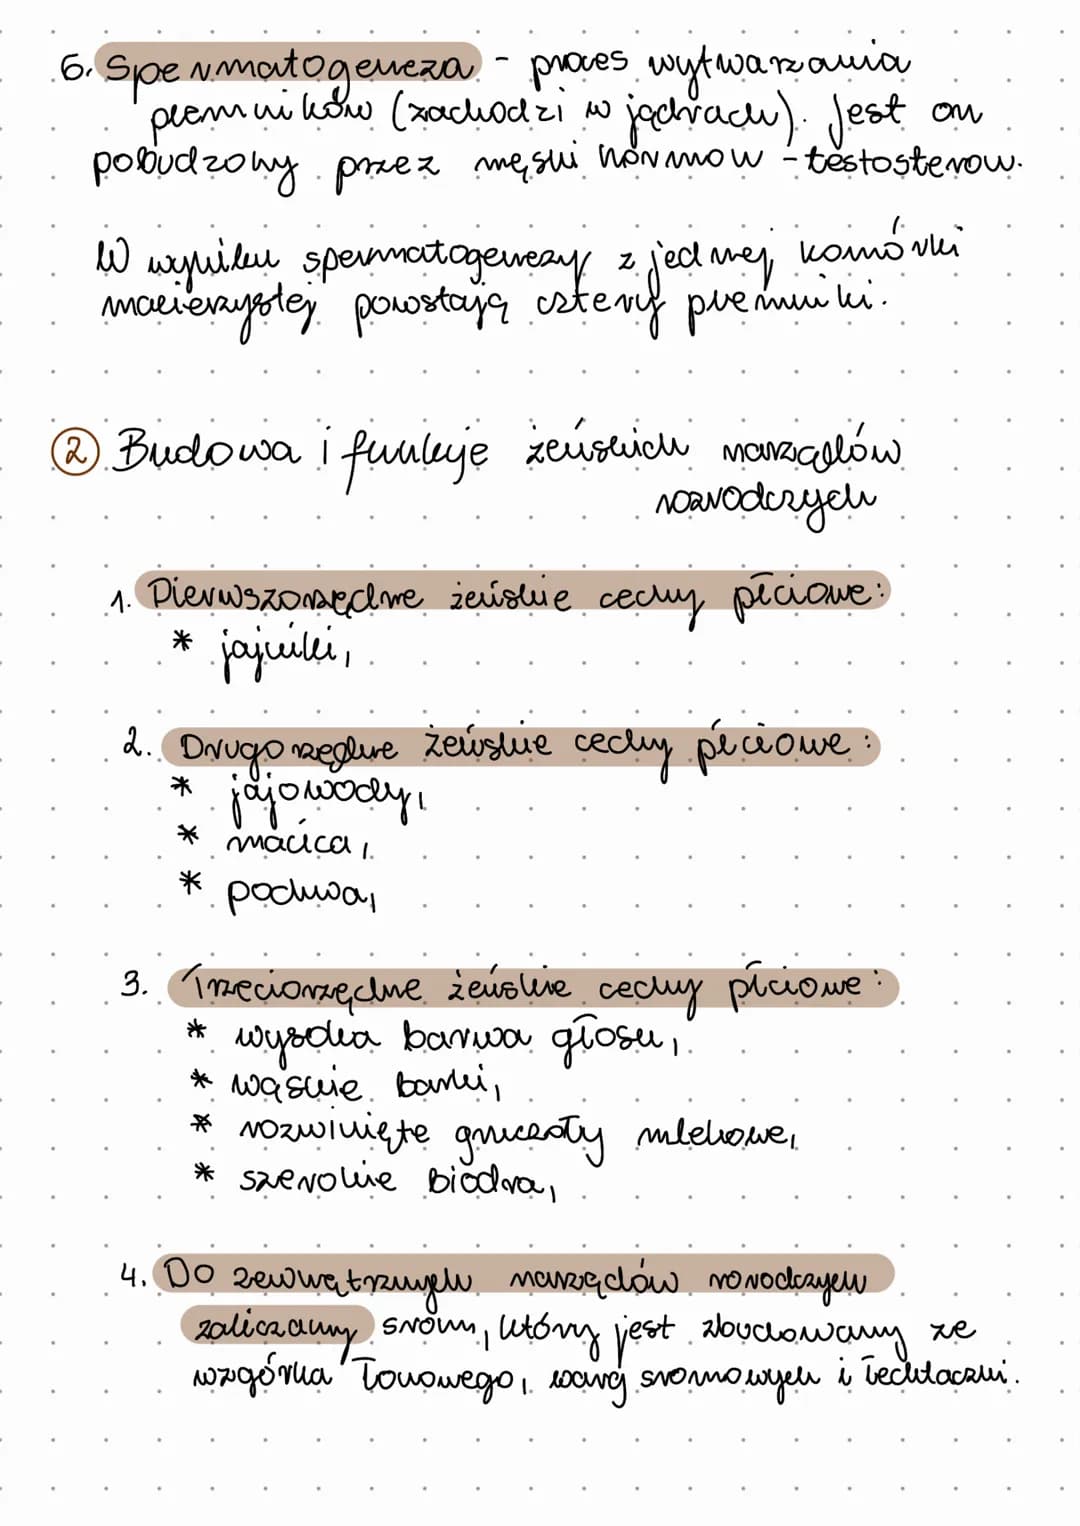 6. Spermatogeneza - proces wytwarzania
plemników (zachodzi w jądrach). Jest on
pobudzony przez męski hormon - testosteron.
W wyniku spermatogenezy z jednej komórki
macierzystej powstają cztery plemniki.
② Budowa i funkcje żeńskich narządów
rozrodczych
1. Pierwszorzędne żeńskie cechy płciowe:
* jajniki,
2. Drugorzędne żeńskie cechy płciowe:
* jajowody,
* macica,
* pochwa,
3. Trzeciorzędne żeńskie cechy płciowe:
* wysoka barwa głosu,
* wąskie barki,
* rozwinięte gruczoły mlekowe,
* szerokie biodra,
4. Do zewnętrznych narządów rozrodczych
zaliczamy srom, który jest zbudowany ze
wzgórka łonowego, warg sromowych i łechtaczki.